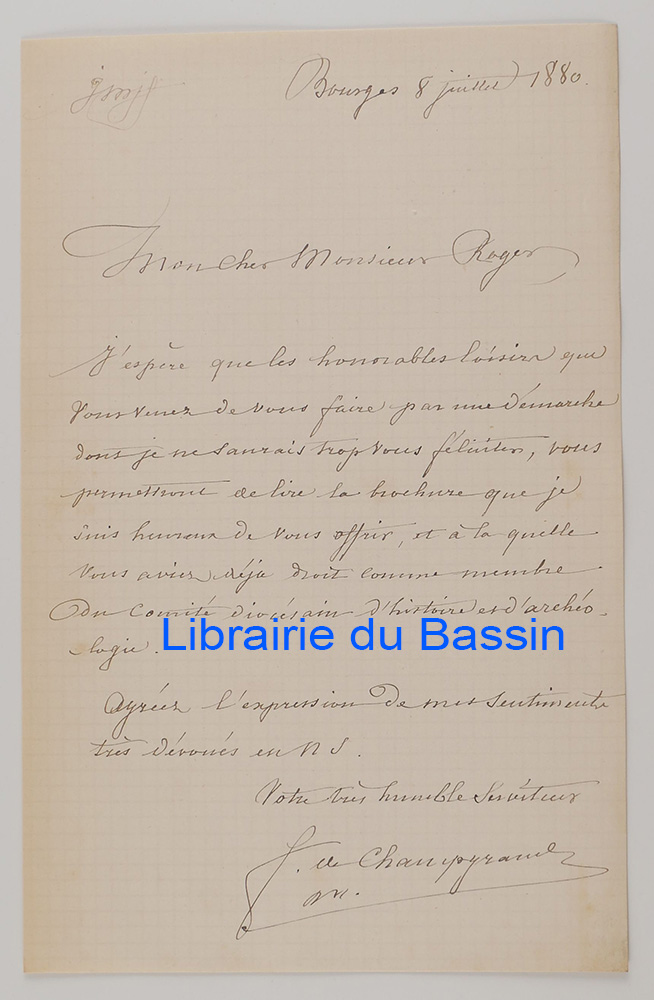 Bourges 8 juillet 1880.
Mon cher Monsieur Roger
J'espère que les honorables loisirs que
vous venez de vous faire par une démarche
dont je ne saurais trop vous féliciter, vous
permettront de lire la brochure que je
suis heureux de vous offrir, et à la quelle
vous aviez déjà droit comme membre
du Comité diocésain d'histoire et d'archéo-
-logie.
Librairie du Bassin
Agréez l'expression de mes sentiments
très dévoués en NS.
Votre très humble serviteur
de Champgrand